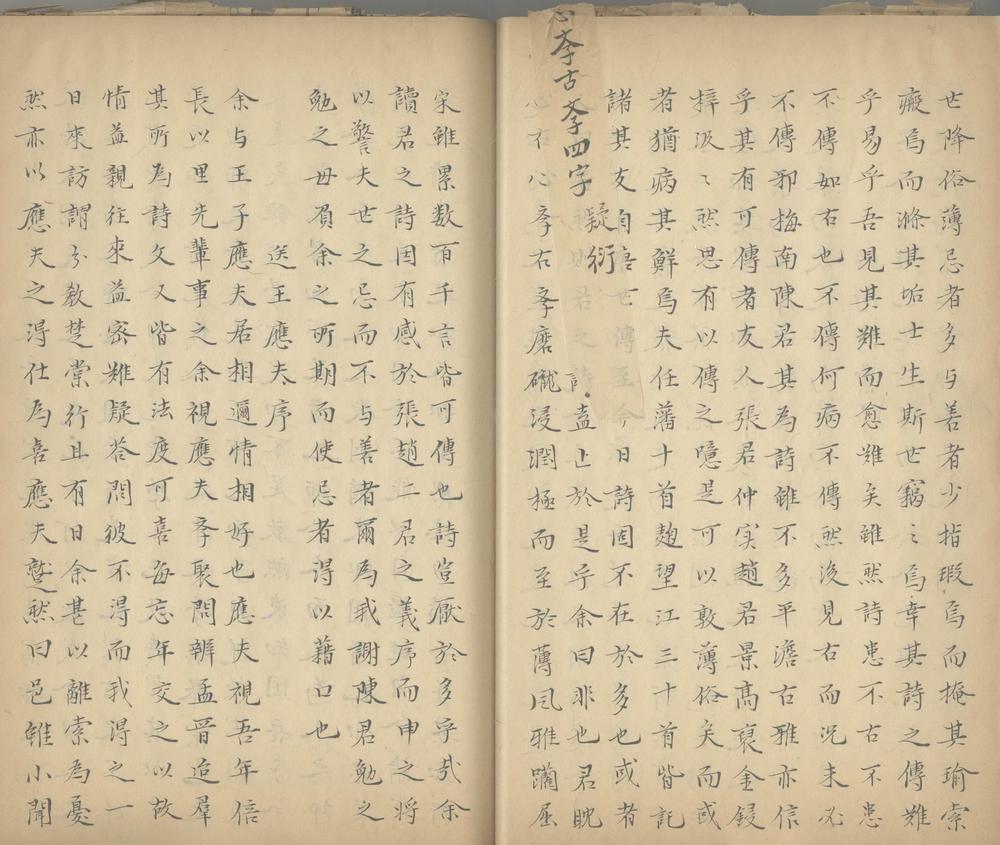 世降俗薄忌者多与善者少指瑕焉而掩其瑜索
瘢焉而滌其垢士生斯世竊〻焉幸其詩之傳難
乎易乎吾見其難而愈難矣雖然詩患不古不患
不傳如古也不傳何病不傳然後見古而況未必
不傳邪梅南陳君其為詩雖不多平澹古雅亦信
乎其有可傳者友人張君仲实趙君景高裒金鋟
梓汲〻然思有以傳之噫是可以敦薄俗矣而或
者猶病其鮮焉夫任藩十首趙望江三十首皆託
諸其友自唐世傳至今日詩固不在於多也或者
詩盍止於是乎余曰非也君眈
心孝古孝四字
疑衍
心古心孝古孝磨礲浸潤極而至於薄風雅躪屈
宋雖累数百千言皆可傳也詩豈厭於多乎哉余
讀君之詩因有感於張趙二君之義序而申之将
以警夫世之忌而不与善者爾為我謝陳君勉之
勉之毋負余之所期而使忌者得以藉口也
送王應夫序
余与王子應夫居相邇情相好也應夫視吾年信
長以里先輩事之余視應夫孝聚問辨孟晋迨羣
其所為詩文又皆有法度可喜每忘年交之以故
情益親往来益密難疑荅問彼不得而我得之一
日来訪謂分教楚棠行且有日余甚以離索為憂
然亦以應夫之得仕為喜應夫蹵然曰邑雖小聞